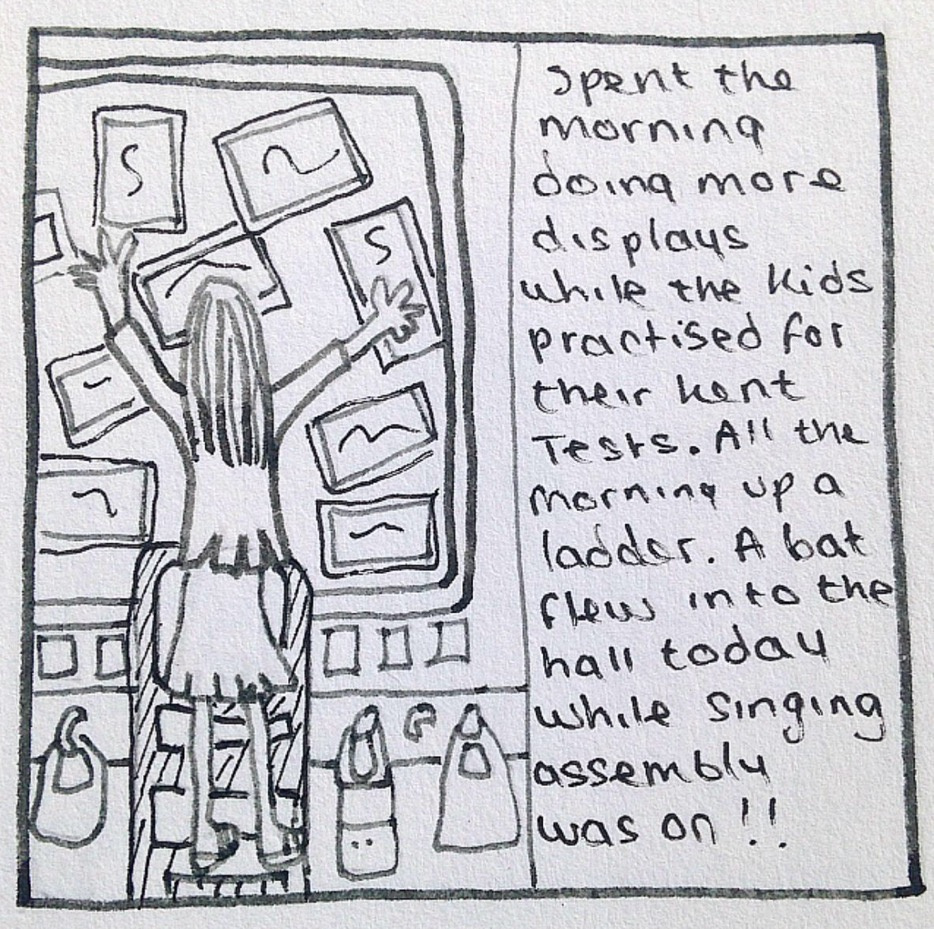 Spent the
morning
doing more
displays
while the kids
practised for
their Kent
Tests. All the
morning up a
ladder. A bat
flew into the
hall today
while singing
assembly
was on!!